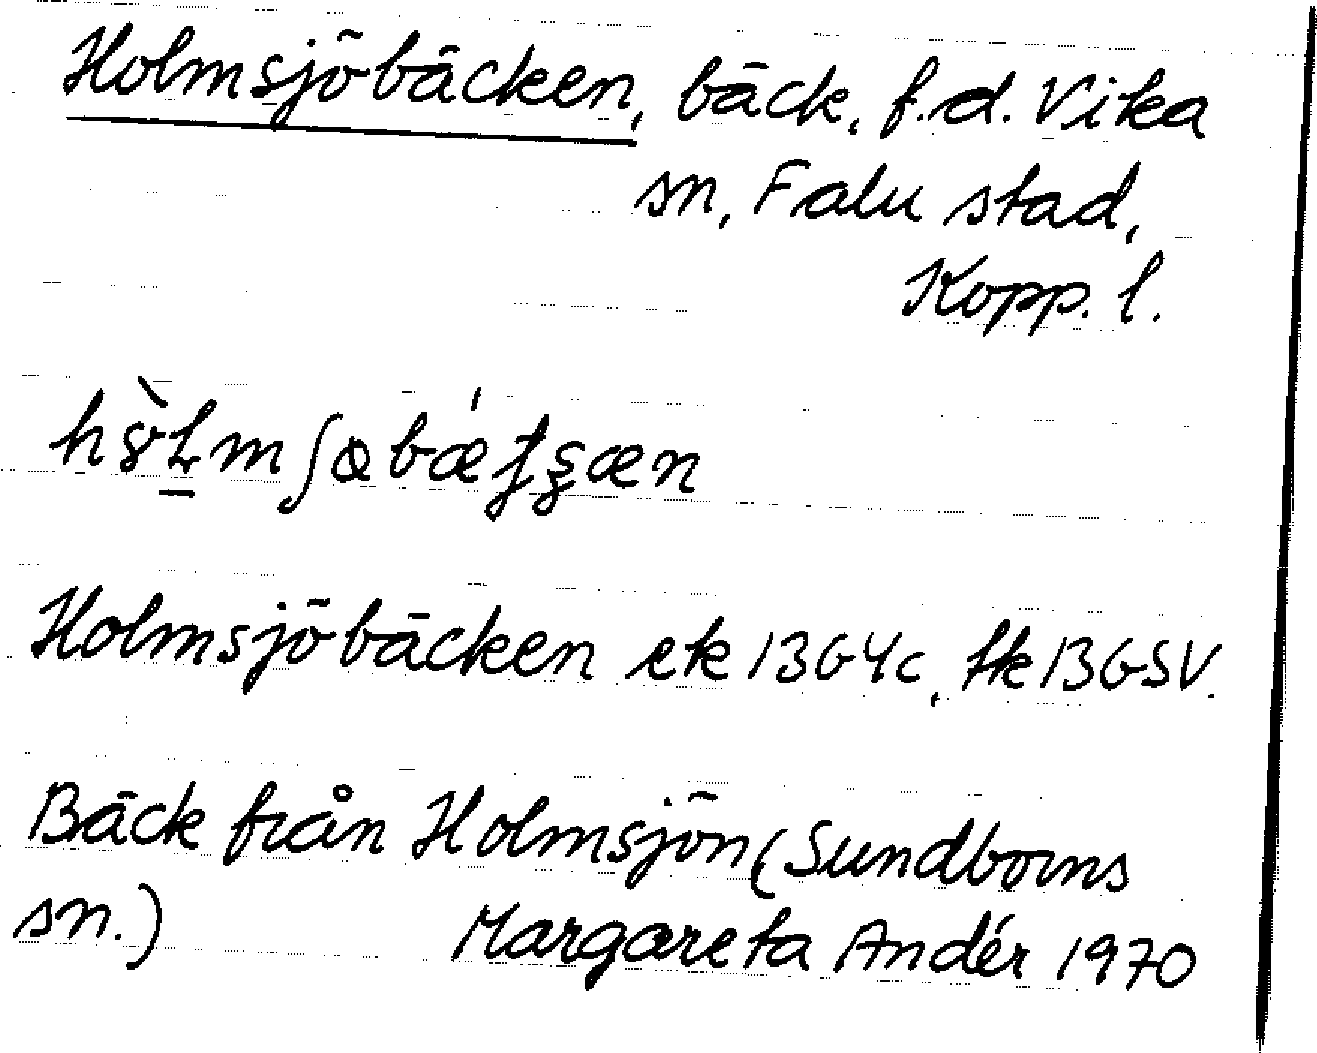 Holmsjöbäcken, bäck, f.d. Vika
sn, Falu stad,
Kopp. l.
Holmsjöbäcken ek 13G4c, fk 13GSV.
Bäck från Holmsjön (Sundborns
sn.) Margareta Andér 1970